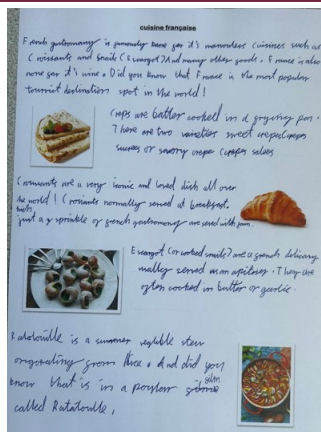 cuisine française
French gastronomy is famously know for it's marvelous cuisines such as
Croissants and snails (Escargot) And many other foods. France is also
none for it's wine. Did you know that France is the most popular
tourist destination spot in the world!
Creps are batter cooked in a frying pan.
There are two varieties sweet crepes crepes
sucrees or savory crepe crepes salees
Croissants are a very iconic and loved dish all over
the world! Croissants normally served at breakfast
just a sprinkle of french gastronomy are served with jam.
Escargot (or cooked snails) are a french delicacy
normally served as an apitizer. They are
often cooked in butter or garlic.
Ratatouille is a vegtible stew
originating from Nice. And did you
know that is in a popular film
called Ratatoulle,